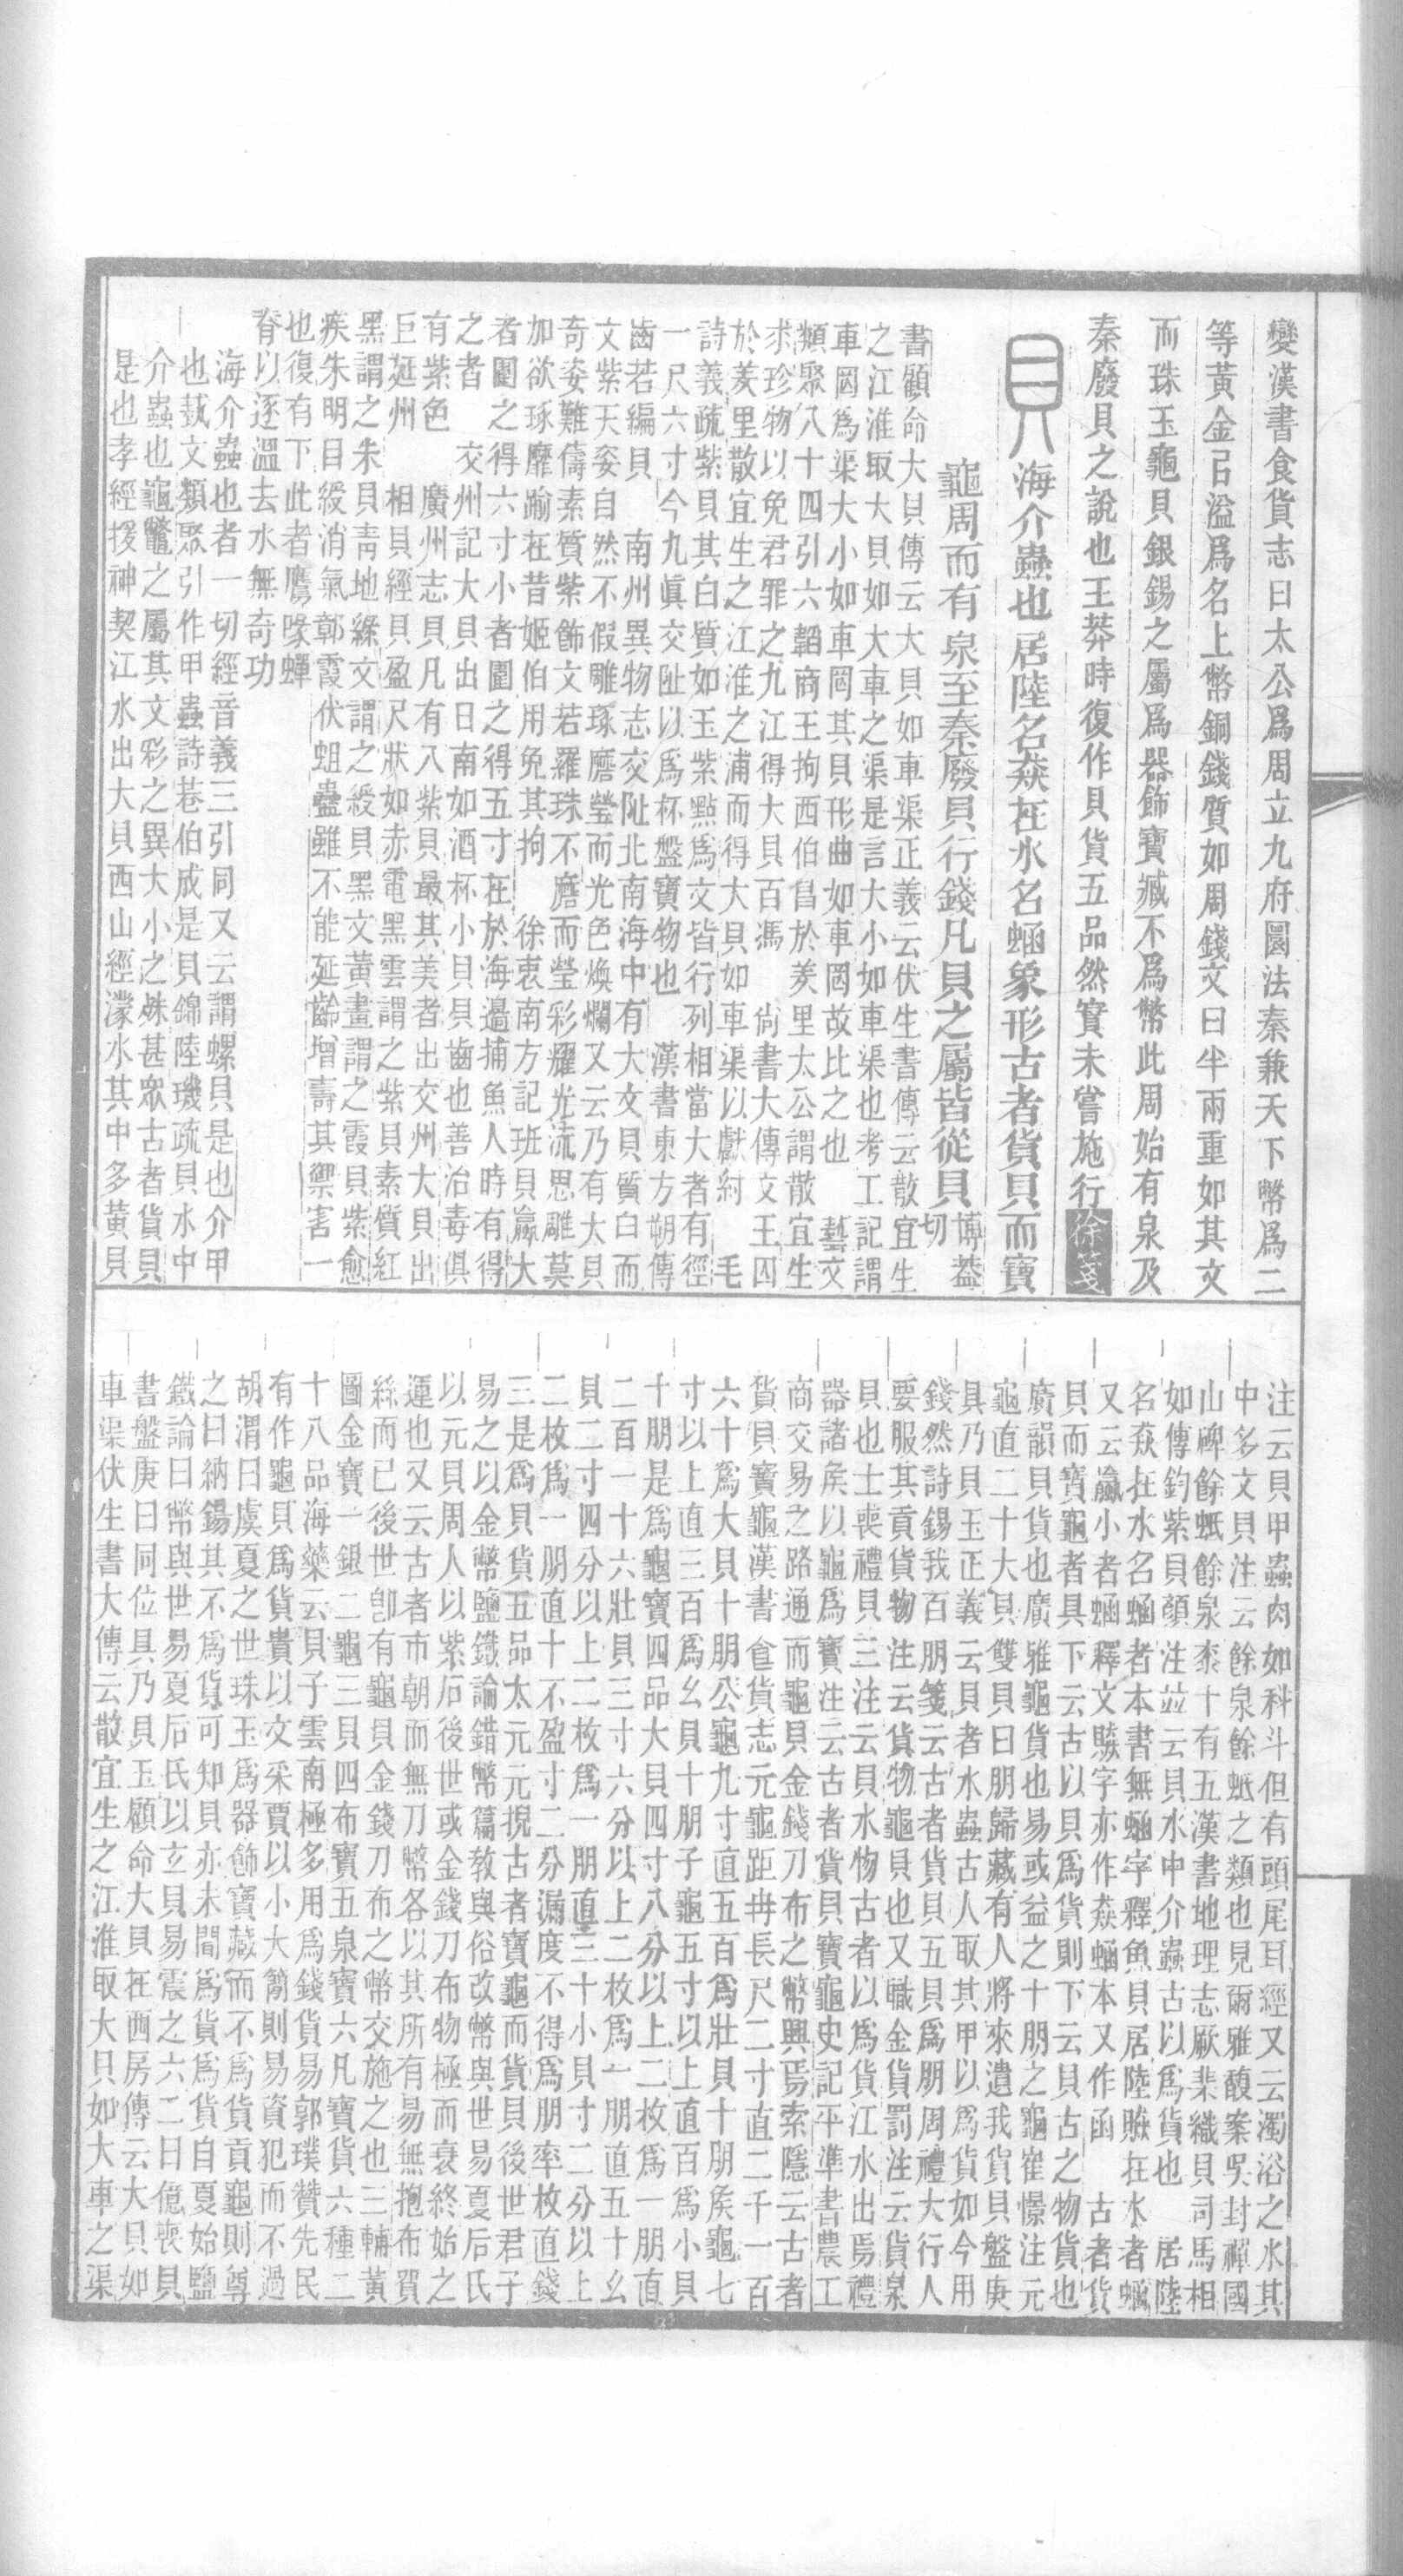 變漢書食貨志曰太公爲周立九府圜法秦兼天下幣爲二
等黃金㠯溢爲名上幣銅錢質如周錢文曰半兩重如其文
而珠玉龜貝銀錫之屬爲器飾寶臧不爲幣此周始有泉及
秦廢貝之說也王莽時復作貝貨五品然實未嘗施行徐箋
貝海介蟲也居陸名猋在水名蜬象形古者貨貝而寶
龜周而有泉至秦廢貝行錢凡貝之屬皆從貝博葢切
書顧命大貝傳云大貝如車渠正義云伏生書傳云散宜生
之江淮取大貝如大車之渠是言大小如車渠也考工記謂
車罔爲渠大小如車罔其貝形曲如車罔故比之也　藝文
類聚八十四引六韜商王拘西伯昌於羑里太公謂散宜生
求珍物以免君罪之九江得大貝百馮　尙書大傳文王囚
於羑里散宜生之江淮之浦而得大貝如車渠以獻紂　毛
詩義疏紫貝其白質如玉紫點爲文皆行列相當大者有徑
一尺六寸今九眞交阯以爲杯盤寶物也　漢書東方朔傳
齒若編貝　南州異物志交阯北南海中有大文貝質白而
文紫天姿自然不假雕琢磨瑩而光色煥爛又云乃有大貝
奇姿難儔素質紫飾文若羅珠不磨而瑩彩耀光流思雕莫
加欲琢靡踰在昔姬伯用免其拘　徐衷南方記班貝贏大
者圍之得六寸小者圍之得五寸在於海邊捕魚人時有得
之者　交州記大貝出日南如酒杯小貝貝齒也善治毒俱
有紫色　廣州志貝凡有八紫貝最其美者出交州大貝出
巨延州　相貝經貝盈尺狀如赤電黑雲謂之紫貝素質紅
黑謂之朱貝靑地綠文謂之綬貝黑文黃畫謂之霞貝紫愈
疾朱明目綬消氣鄣霞伏蛆蠱雖不能延齡增壽其禦害一
也復有下此者鷹喙蟬
脊以逐溫去水無奇功
海介蟲也者一切經音義三引同又云謂螺貝是也介甲
也蓺文類聚引作甲蟲詩巷伯成是貝錦陸璣疏貝水中
介蟲也龜鼈之屬其文彩之異大小之殊甚眾古者貨貝
是也孝經援神契江水出大貝西山經濛水其中多黃貝
注云貝甲蟲肉如科斗但有頭尾耳經又云濁浴之水其
中多文貝注云餘泉餘蚳之類也見爾雅馥案吳封禪國
山碑餘蚳餘泉柰十有五漢書地理志厥棐織貝司馬相
如傳釣紫貝顏注竝云貝水中介蟲古以爲貨也　居陸
名猋在水名蜬者本書無蜬字釋魚貝居陸贆在水者蜬
又云蠃小者蜬釋文贆字亦作猋蜬本又作函　古者貨
貝而寶龜者具下云古以貝爲貨則下云貝古之物貨也
廣韻貝貨也廣雅龜貨也易或益之十朋之龜崔憬注元
龜直二十大貝雙貝曰朋歸藏有人將來遺我貨貝盤庚
具乃貝玉正義云貝者水蟲古人取其甲以爲貨如今用
錢然詩錫我百朋箋云古者貨貝五貝爲朋周禮大行人
要服其貢貨物注云貨物龜貝也又職金貨罰注云貨泉
貝也士喪禮貝三注云貝水物古者以爲貨江水出焉禮
器諸矦以龜爲寶注云古者貨貝寶龜史記平準書農工
商交易之路通而龜貝金錢刀布之幣興焉索隱云古者
貨貝寶龜漢書食貨志元龜距冉長尺二寸直二千一百
六十爲大貝十朋公龜九寸直五百爲壯貝十朋矦龜七
寸以上直三百爲幺貝十朋子龜五寸以上直百爲小貝
十朋是爲龜寶四品大貝四寸八分以上二枚爲一朋直
二百一十六壯貝三寸六分以上二枚爲一朋直五十幺
貝二寸四分以上二枚爲一朋直三十小貝寸二分以上
二枚爲一朋直十不盈寸二分漏度不得爲朋率枚直錢
三是爲貝貨五品太元元掜古者寶龜而貨貝後世君子
易之以金幣鹽鐵論錯幣篇敎與俗改幣與世易夏后氏
以元貝周人以紫石後世或金錢刀布物極而衰終始之
運也又云古者市朝而無刀幣各以其所有易無抱布貿
絲而已後世卽有龜貝金錢刀布之幣交施之也三輔黃
圖金寶一銀二龜三貝四布寶五泉寶六凡寶貨六種二
十八品海藥云貝子雲南極多用爲錢貨易郭璞贊先民
有作龜貝爲貨貴以文采賈以小大簡則易資犯而不過
胡渭曰虞夏之世珠玉爲器飾寶藏而不爲貨貢龜則尊
之曰納錫其不爲貨可知貝亦未聞爲貨爲貨自夏始鹽
鐵論曰幣與世易夏后氏以立貝易震之六二曰億喪貝
書盤庚曰同位具乃貝玉顧命大貝在西房傳云大貝如
車渠伏生書大傳云散宜生之江淮取大貝如大車之渠